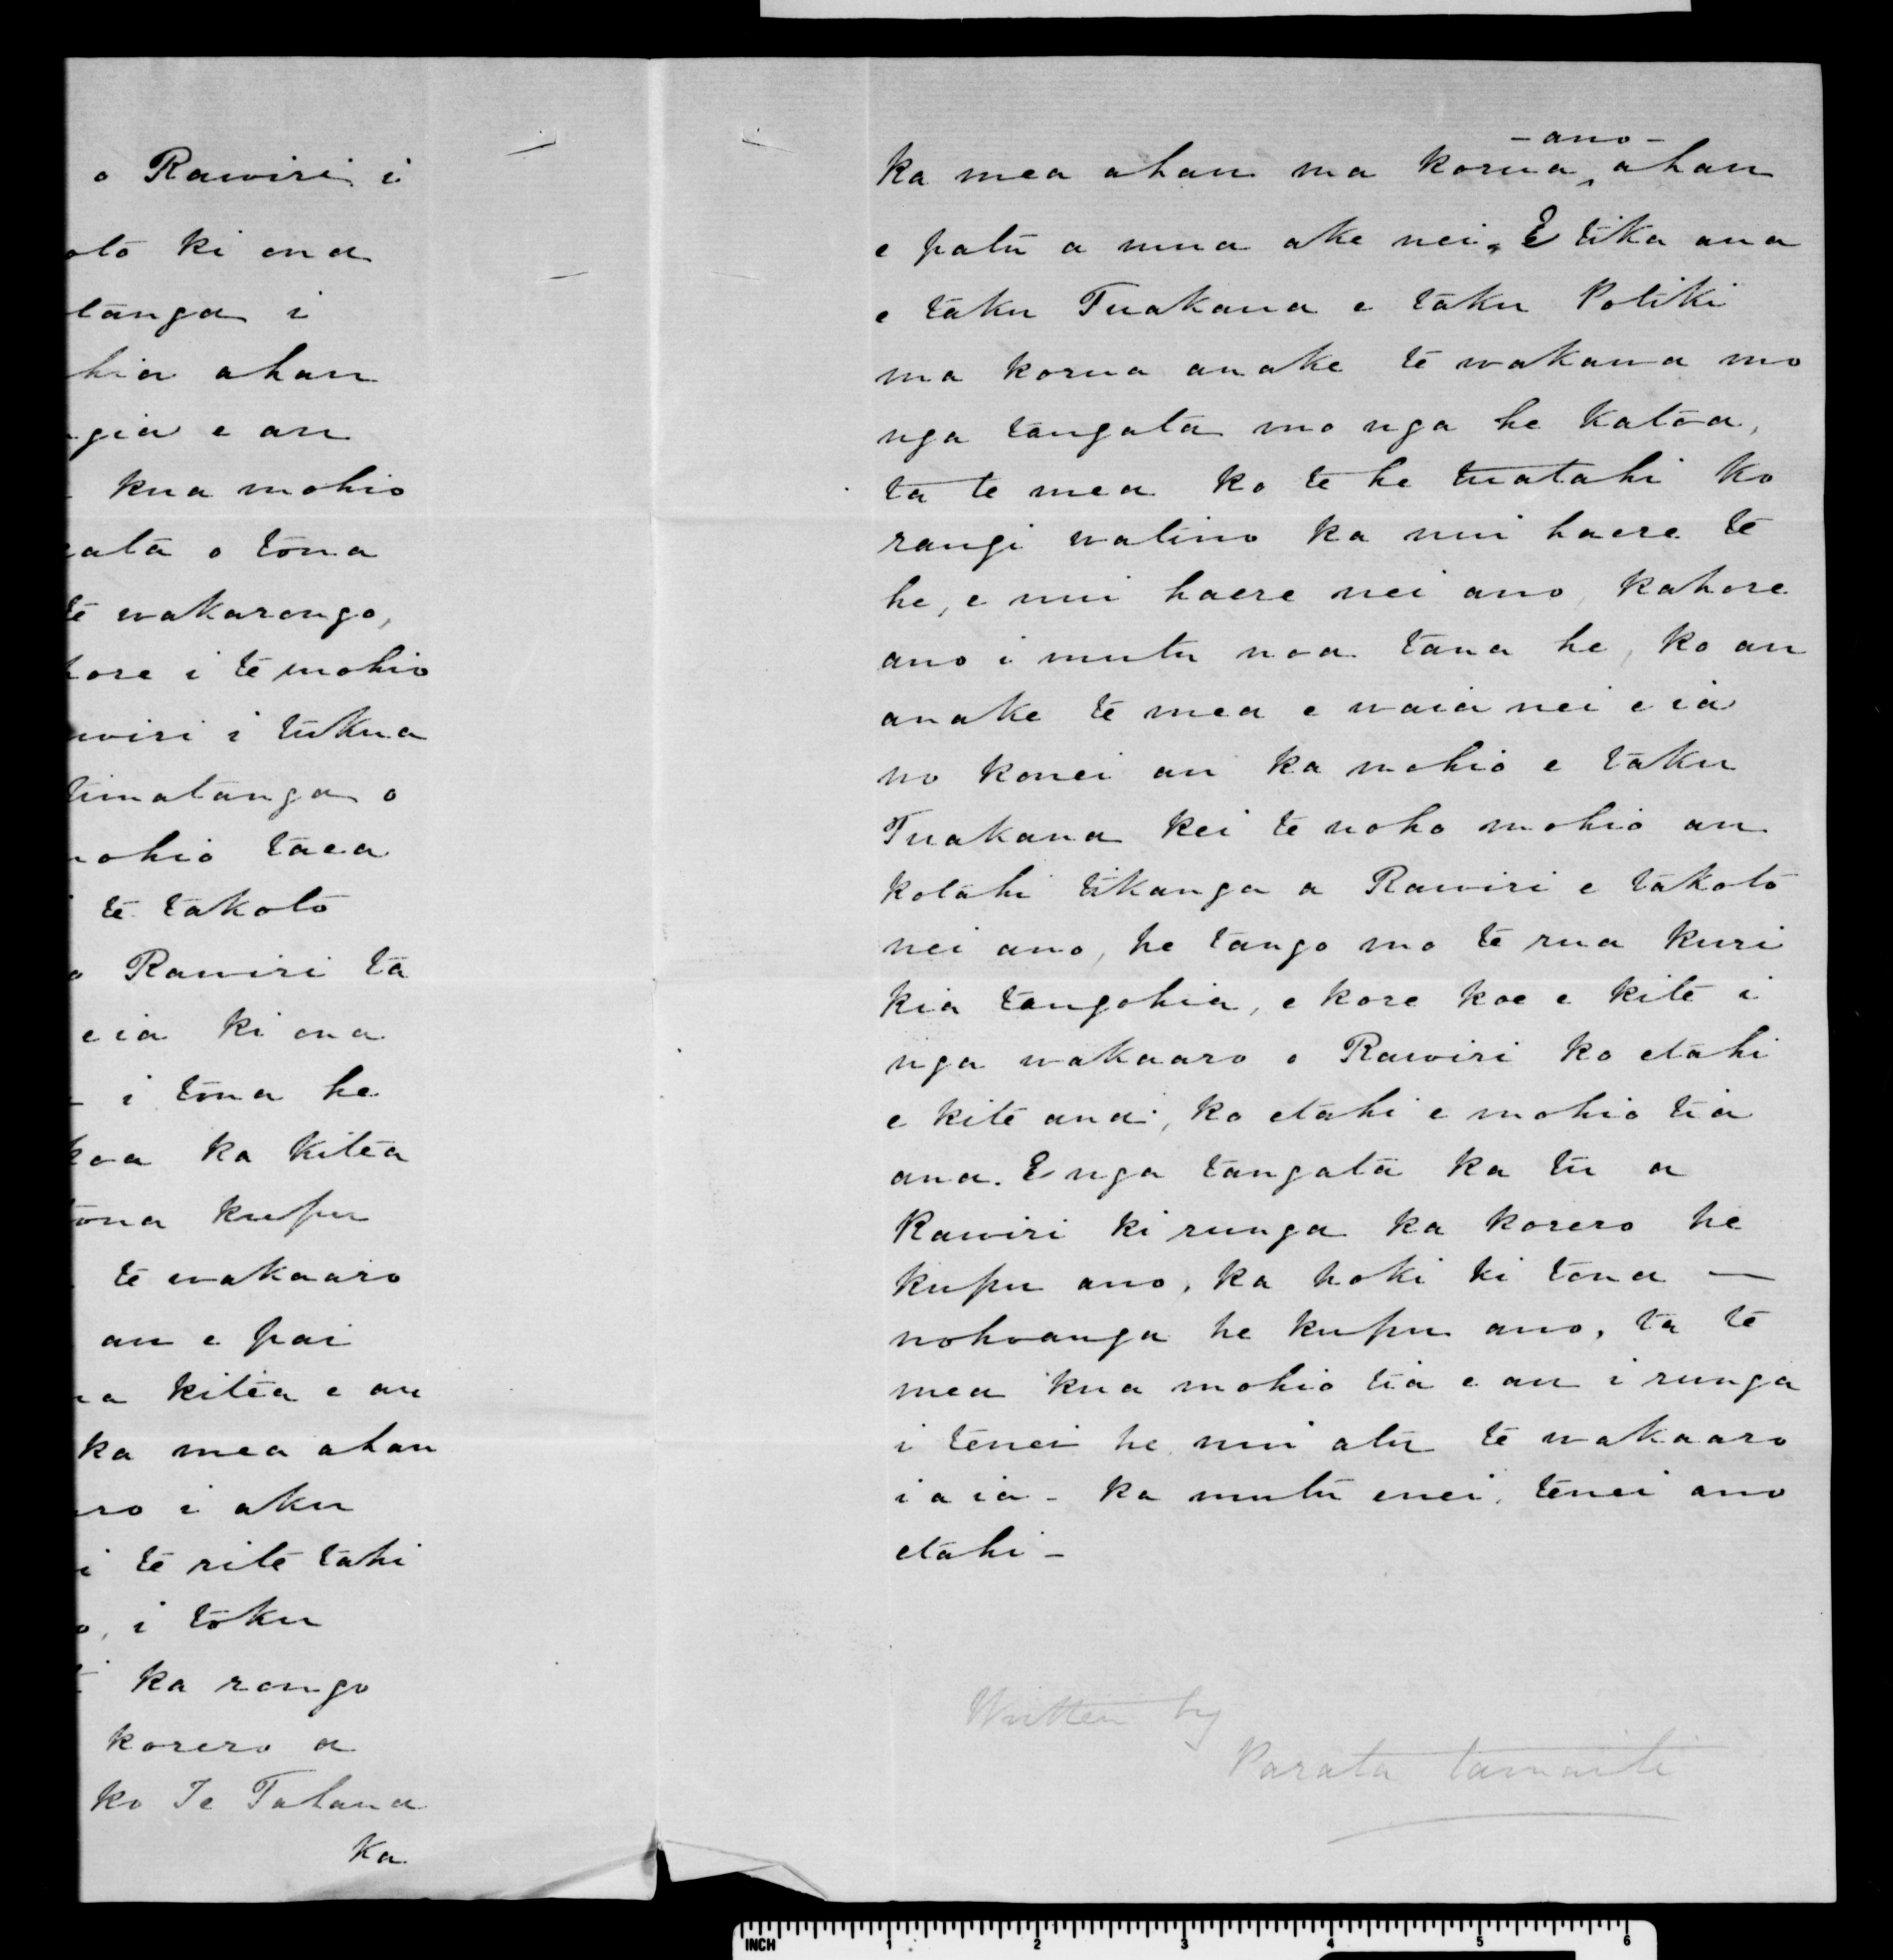 o Rawiri i
ki ona
i
ahau
e au
kua mohio
o tona
te wakarongo,
i te mohio
i tukua
timatanga o
taea
te takoto
o Rawiri ta
eia ki ona
i tona he
ka kitea
kupu
te wakaaro
au e pai
kitea e au
ka mea ahau
i aku
te rite tahi
i toku
ka rongo
korero a
ko Te Tahana
Ka
- ano -
ka mea ahau ma korua ahau
e patu a mua ake nei. E tika ana
e taku Tuakana e taku Potiki
ma korua anake te wakawa mo
nga tangata mo nga he katoa,
ta te mea ko te he tuatahi ko
rangi watino ka nui haere te
he, e nui haere nei ano, kahore
ano i mutu noa tana he, ko au
anake te mea e waia nei e ia
no konei au ka mohio e taku
Tuakana kei te noho mohio au
kotahi tikanga a Rawiri e takoto
nei ano, he tango mo te rua kuri
kia tangohia, e kore koe e kite i
nga wakaaro o Rawiri ko etahi
e kite ana, ko etahi e mohio tia
ana. E nga tangata ka tu a
Rawiri ki runga ka korero he
kupu ano, ka hoki ki tona —
nohoanga he kupu ano, ta te
mea kua mohio tia e au i runga
i tenei he nui atu te wakaaro
i a ia - ka mutu enei, tenei ano
etahi -
Written by
Parata tamaiti
INCH 1 2 3 4 5 6